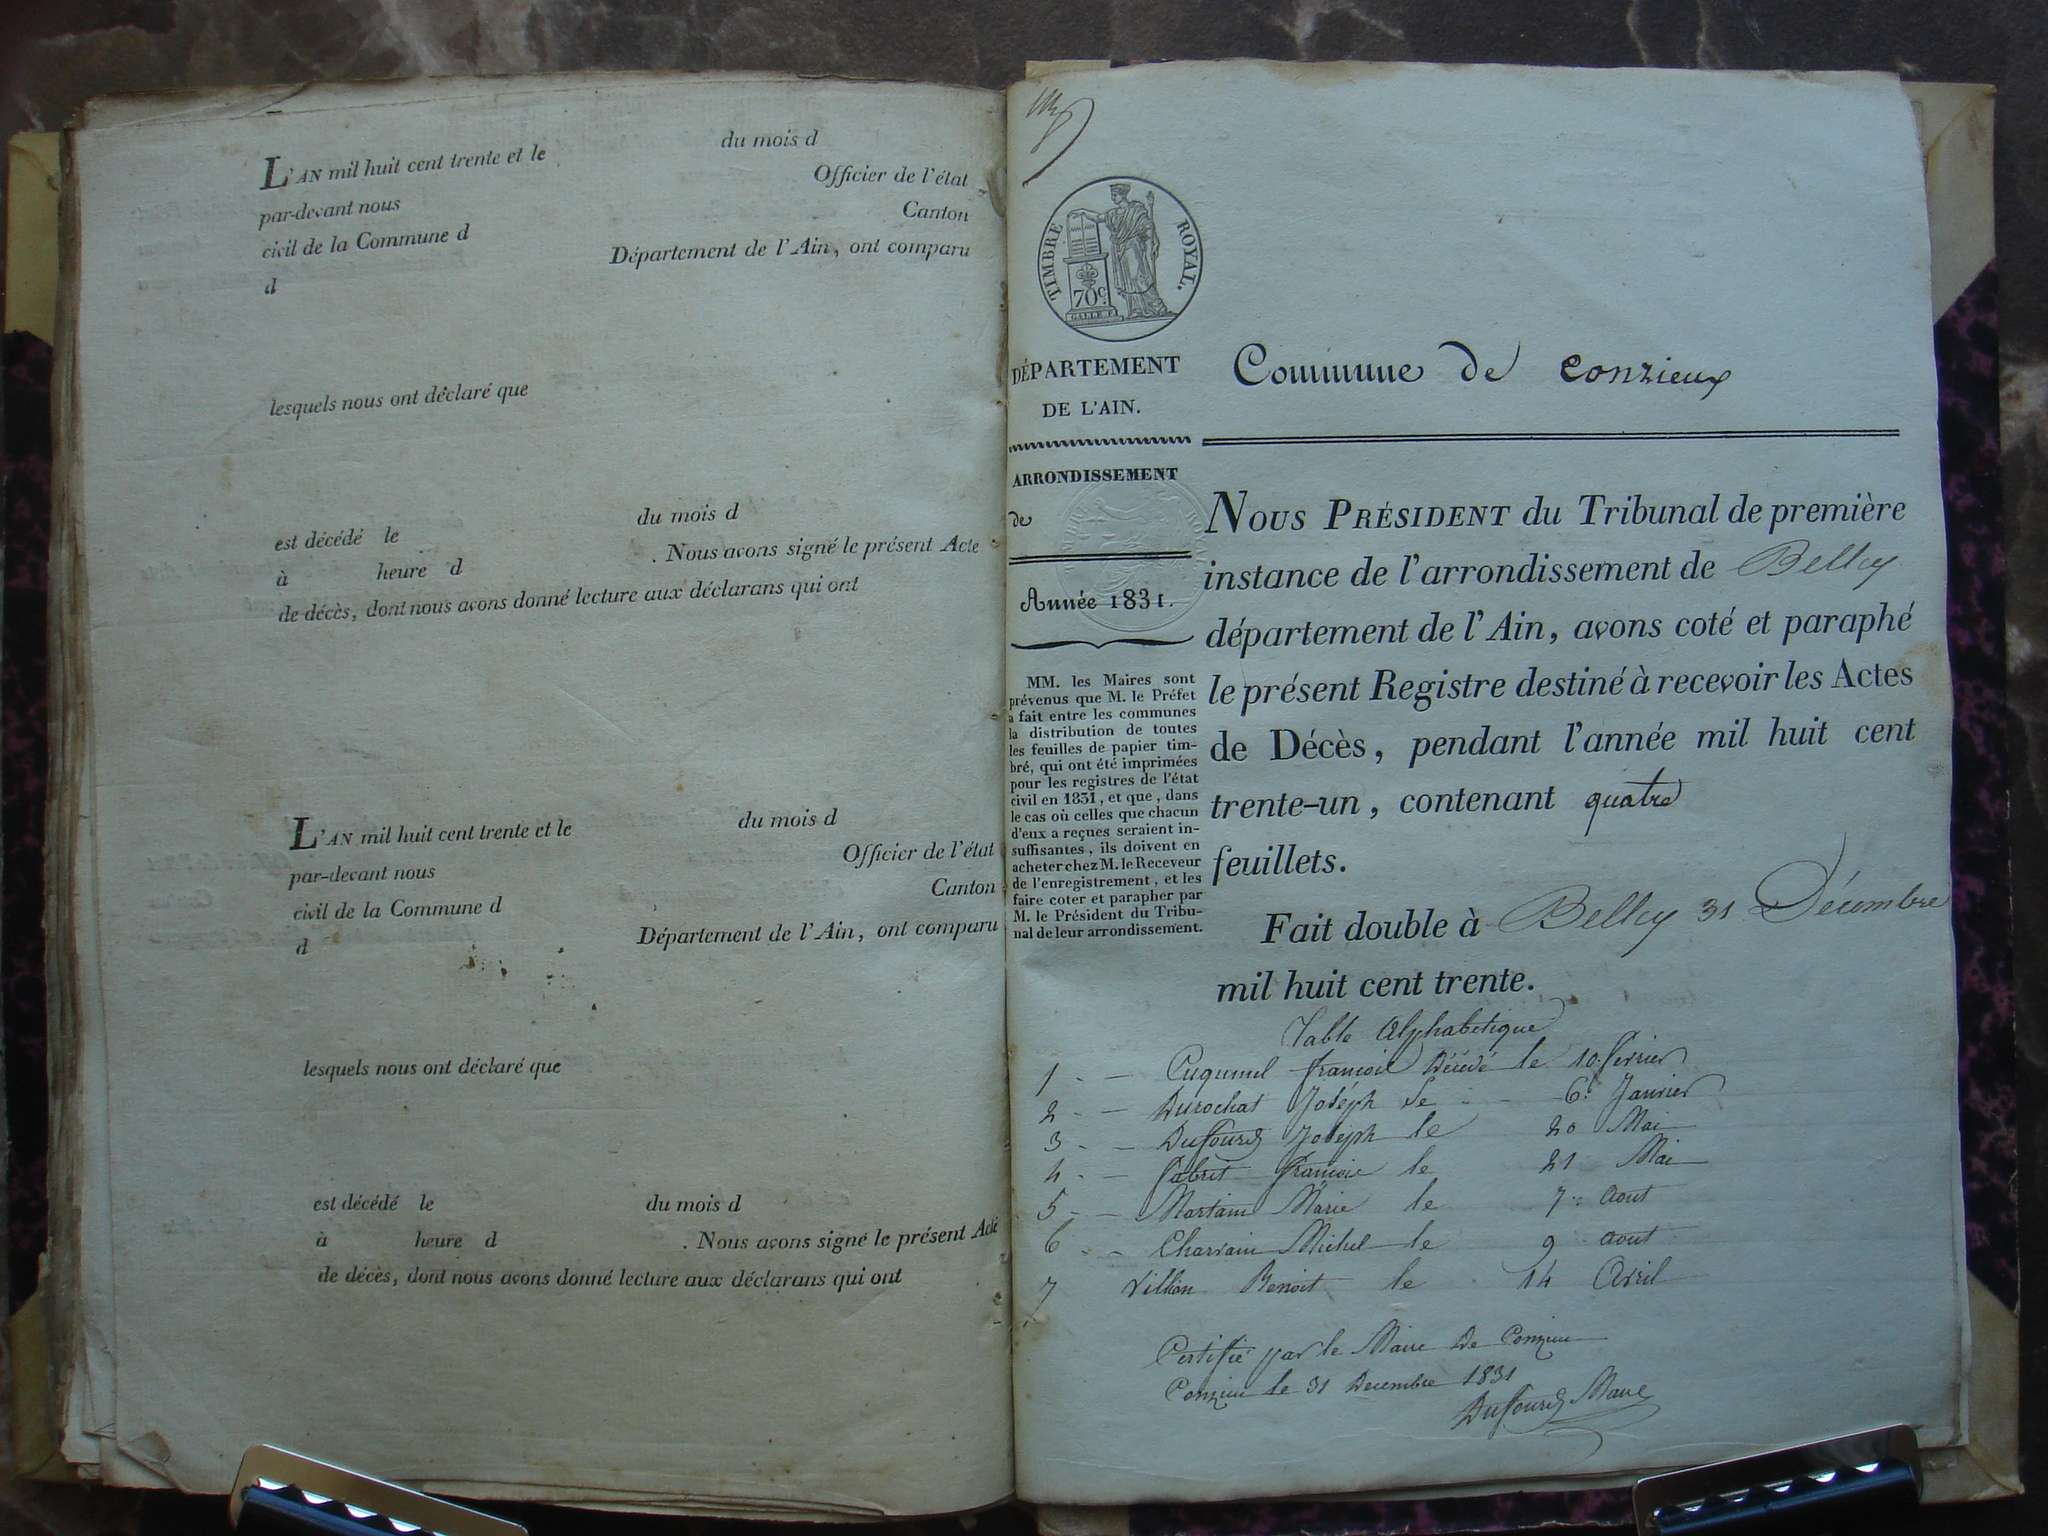 L'AN mil huit cent trente et le du mois d
par-devant nous Officier de l'état
civil de la Commune d Canton
d Département de l'Ain, ont comparu
lesquels nous ont déclaré que
est décédé le du mois d
à heure d . Nous avons signé le présent Acte
de décès, dont nous avons donné lecture aux déclarans qui ont
L'AN mil huit cent trente et le du mois d
par-devant nous Officier de l'état
civil de la Commune d Canton
d Département de l'Ain, ont comparu
lesquels nous ont déclaré que
est décédé le du mois d
à heure d . Nous avons signé le présent Acte
de décès, dont nous avons donné lecture aux déclarans qui ont
TIMBRE ROYAL.
70c.
DÉPARTEMENT
DE L'AIN.
ARRONDISSEMENT
de
Année 1831.
MM. les Maires sont
prévenus que M. le Préfet
a fait entre les communes
la distribution de toutes
les feuilles de papier tim-
bré, qui ont été imprimées
pour les registres de l'état
civil en 1831, et que, dans
le cas où celles que chacun
d'eux a reçues seraient in-
suffisantes, ils doivent en
acheter chez M. le Receveur
de l'enregistrement, et les
faire coter et parapher par
M. le Président du Tribu-
nal de leur arrondissement.
Commune de Conzieux
NOUS PRÉSIDENT du Tribunal de première
instance de l'arrondissement de Belley
département de l'Ain, avons coté et paraphé
le présent Registre destiné à recevoir les Actes
de Décès, pendant l'année mil huit cent
trente-un, contenant quatre
feuillets.
Fait double à Belley 31 Décembre
mil huit cent trente.
Table Alphabetique
1 - - françois Décédé le 10 fevrier
2 - - Durochat Joséph le - - 6 Janvier
3 - - Duffourd Joséph le 20 Mai
4 - - fabret françoise le 21 Mai
5 - - Martain Marie le 7 aout
6 - - Charvain Michel le 9 aout
7 Villion Benoit le 14 Avril
Certifié par le Maire De Conzieu
Conzieu le 31 Decembre 1831
Duffourd Maire